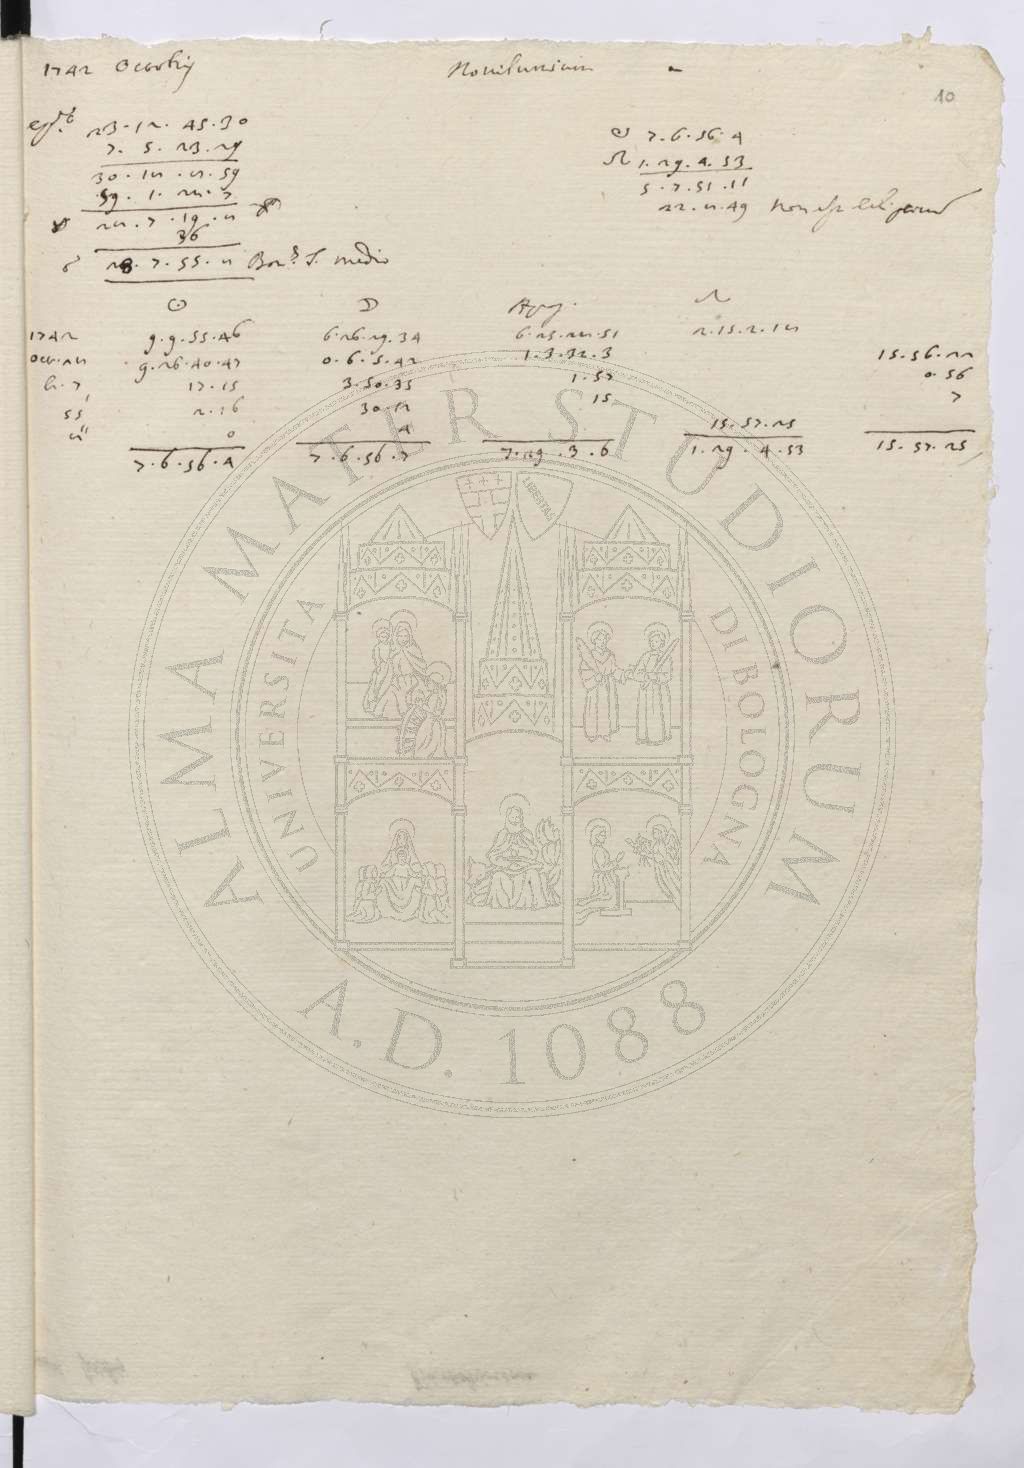 1742 Octobris Novilunium
10
23.12.45.30
7.5.23.29
30.18.8.59
59.1.28.7
28.7.19.8
36
28.7.55.8 Bon. T. medio
☉ 7.6.56.4
☊ 1.29.4.53
5.7.51.11
22.8.49 Non est
☉ ☽ Apog. ☊
1742 9.9.55.46 6.26.29.34 6.25.28.51 2.15.2.18
Oct. 28 9.26.40.47 0.6.5.42 1.3.32.3 15.56.22
h. 7 17.15 3.50.35 1.57 0.56
55' 2.16 30.12 15 7
8'' 0 4 15.57.25
7.6.56.4 7.6.56.7 7.29.3.6 1.29.4.53 15.57.25
ALMA MATER STUDIORUM
UNIVERSITÀ DI BOLOGNA
LIBERTAS
A.D. 1088